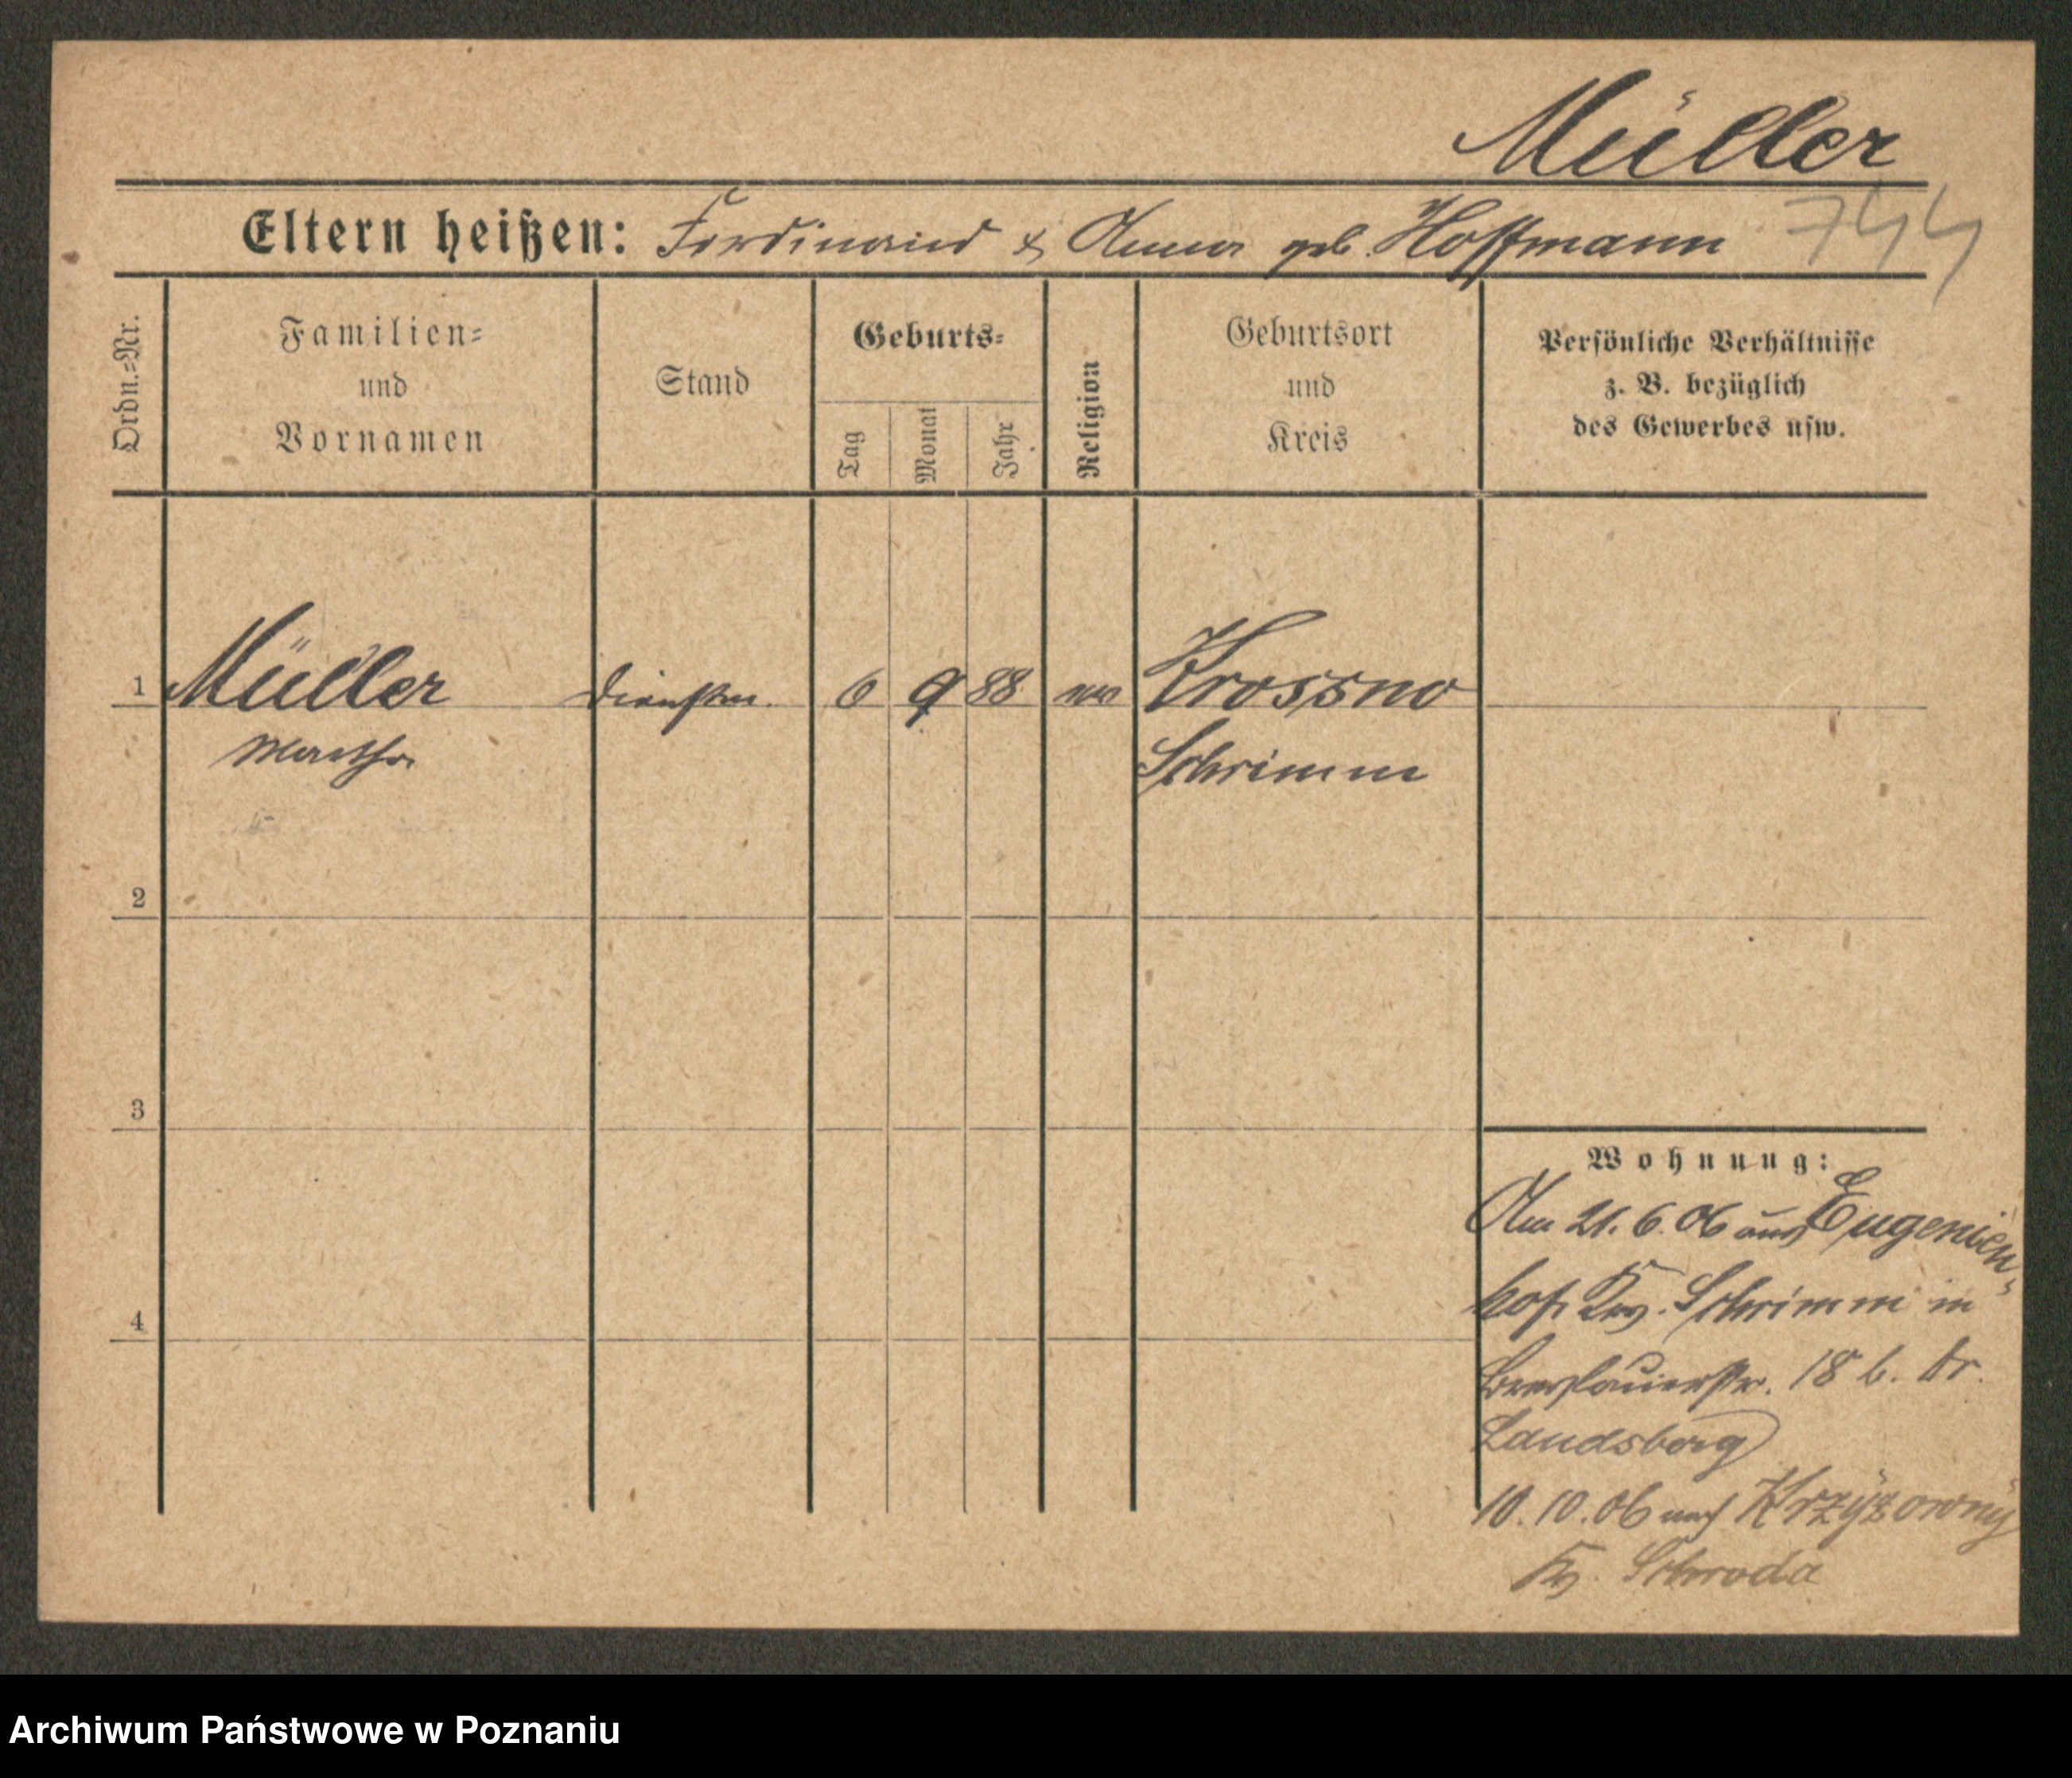 Müller
744
Eltern heißen: Ferdinand & Anna geb. Hoffmann
Ordn.=Nr.
Familien=
und
Vornamen
Stand
Geburts=
Tag
Monat
Jahr
Religion
Geburtsort
und
Kreis
Persönliche Verhältnisse
z. B. bezüglich
des Gewerbes usw.
1 Müller Dienstm. 6 9 88 Krossno
Martha Schrimm
2
3
4
Wohnung:
Am 21.6.06 aus Eugenien-
hof Krs. Schrimm in
Breslauerstr. 18 b. Dr.
Landsberg
10.10.06 nach Krzyżowny
Kr. Schroda
Archiwum Państwowe w Poznaniu